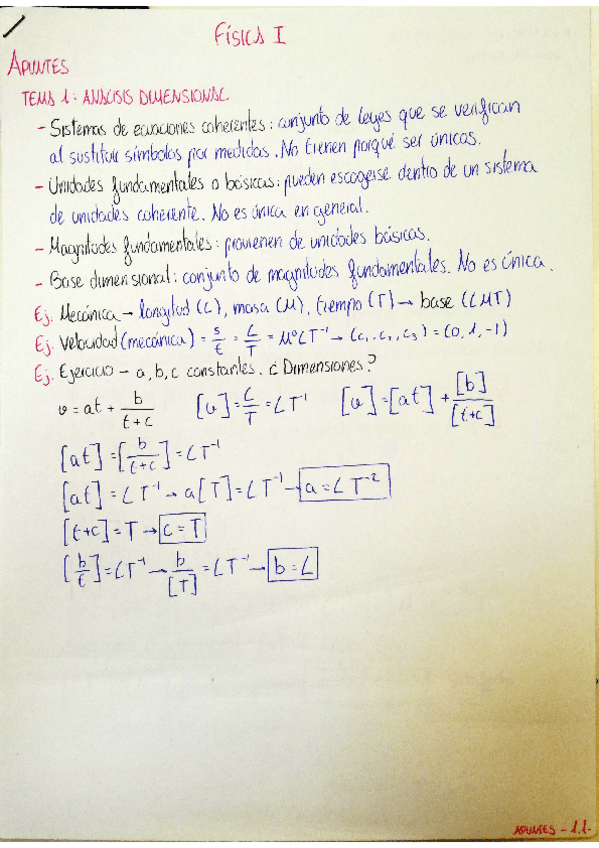 FÍSICA I
APUNTES
TEMA 1: ANÁLISIS DIMENSIONAL.
- Sistemas de ecuaciones coherentes: conjunto de leyes que se verifican
al sustituir símbolos por medidas. No tienen porqué ser únicas.
- Unidades fundamentales o básicas: pueden escogerse dentro de un sistema
de unidades coherente. No es única en general.
- Magnitudes fundamentales: provienen de unidades básicas.
- Base dimensional: conjunto de magnitudes fundamentales. No es única.
Ej. Mecánica → longitud (L), masa (M), tiempo (T) → base (LMT)
Ej. Velocidad (mecánica) = s/t = L/T = M⁰LT⁻¹ → (c₁, c₂, c₃) = (0, 1, -1)
Ej. Ejercicio - a, b, c constantes. ¿Dimensiones?
v = at + b/(t+c) [v] = L/T = LT⁻¹ [v] = [at] + [b]/[t+c]
[at] = [b/(t+c)] = LT⁻¹
[at] = LT⁻¹ → a[T] = LT⁻¹ → a = LT⁻²
[t+c] = T → c = T
[b/t] = LT⁻¹ → b/[T] = LT⁻¹ → b = L
APUNTES - 1.1-